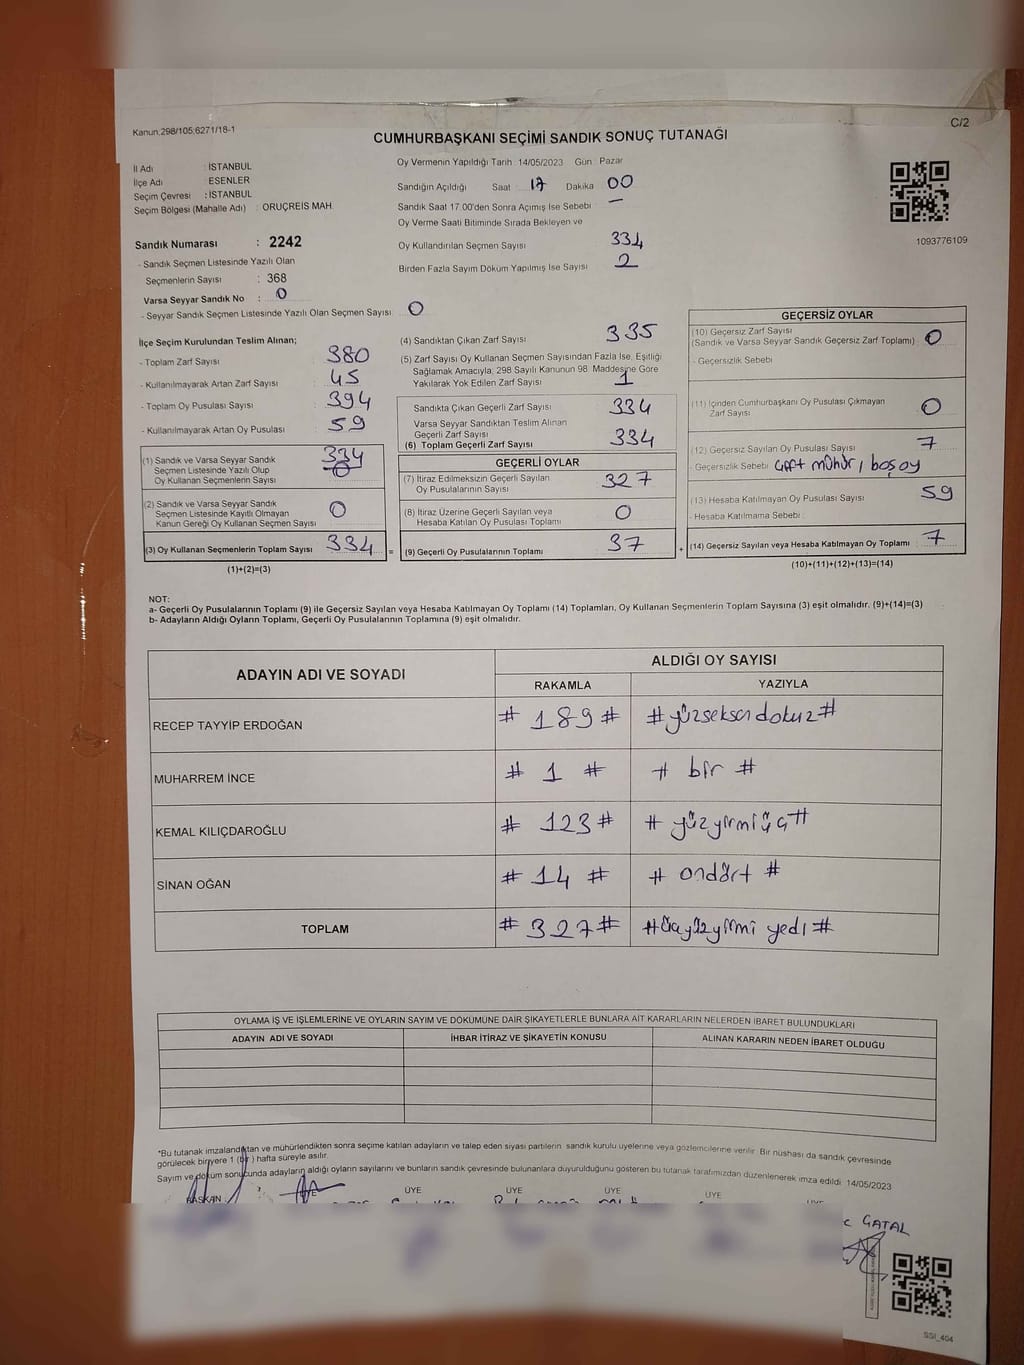 Kanun.298/105;6271/18-1
C/2
CUMHURBAŞKANI SEÇİMİ SANDIK SONUÇ TUTANAĞI
İl Adı : İSTANBUL
İlçe Adı : ESENLER
Seçim Çevresi : İSTANBUL
Seçim Bölgesi (Mahalle Adı) : ORUÇREİS MAH.
Sandık Numarası : 2242
- Sandık Seçmen Listesinde Yazılı Olan
Seçmenlerin Sayısı : 368
Varsa Seyyar Sandık No : 0
- Seyyar Sandık Seçmen Listesinde Yazılı Olan Seçmen Sayısı: 0
Oy Vermenin Yapıldığı Tarih : 14/05/2023 Gün : Pazar
Sandığın Açıldığı Saat : 17 Dakika : 00
Sandık Saat 17.00'den Sonra Açılmış İse Sebebi : —
Oy Verme Saati Bitiminde Sırada Bekleyen ve
Oy Kullandırılan Seçmen Sayısı 334
Birden Fazla Sayım Döküm Yapılmış İse Sayısı 2
1093776109
İlçe Seçim Kurulundan Teslim Alınan;
- Toplam Zarf Sayısı : 380
- Kullanılmayarak Artan Zarf Sayısı : 45
- Toplam Oy Pusulası Sayısı : 394
- Kullanılmayarak Artan Oy Pusulası : 59
(1) Sandık ve Varsa Seyyar Sandık
Seçmen Listesinde Yazılı Olup
Oy Kullanan Seçmenlerin Sayısı 334
(2) Sandık ve Varsa Seyyar Sandık
Seçmen Listesinde Kayıtlı Olmayan
Kanun Gereği Oy Kullanan Seçmen Sayısı 0
(3) Oy Kullanan Seçmenlerin Toplam Sayısı 334 =
(1)+(2)=(3)
(4) Sandıktan Çıkan Zarf Sayısı 335
(5) Zarf Sayısı Oy Kullanan Seçmen Sayısından Fazla İse, Eşitliği
Sağlamak Amacıyla; 298 Sayılı Kanunun 98. Maddesine Göre
Yakılarak Yok Edilen Zarf Sayısı 1
Sandıkta Çıkan Geçerli Zarf Sayısı 334
Varsa Seyyar Sandıktan Teslim Alınan
Geçerli Zarf Sayısı
(6) Toplam Geçerli Zarf Sayısı 334
GEÇERLİ OYLAR
(7) İtiraz Edilmeksizin Geçerli Sayılan
Oy Pusulalarının Sayısı 327
(8) İtiraz Üzerine Geçerli Sayılan veya
Hesaba Katılan Oy Pusulası Toplamı 0
(9) Geçerli Oy Pusulalarının Toplamı 37 +
GEÇERSİZ OYLAR
(10) Geçersiz Zarf Sayısı
(Sandık ve Varsa Seyyar Sandık Geçersiz Zarf Toplamı) : 0
- Geçersizlik Sebebi
(11) İçinden Cumhurbaşkanı Oy Pusulası Çıkmayan
Zarf Sayısı 0
(12) Geçersiz Sayılan Oy Pusulası Sayısı 7
- Geçersizlik Sebebi çift mühür, boş oy
(13) Hesaba Katılmayan Oy Pusulası Sayısı 59
- Hesaba Katılmama Sebebi :
(14) Geçersiz Sayılan veya Hesaba Katılmayan Oy Toplamı : 7
(10)+(11)+(12)+(13)=(14)
NOT:
a- Geçerli Oy Pusulalarının Toplamı (9) ile Geçersiz Sayılan veya Hesaba Katılmayan Oy Toplamı (14) Toplamları, Oy Kullanan Seçmenlerin Toplam Sayısına (3) eşit olmalıdır. (9)+(14)=(3)
b- Adayların Aldığı Oyların Toplamı, Geçerli Oy Pusulalarının Toplamına (9) eşit olmalıdır.
ADAYIN ADI VE SOYADI
ALDIĞI OY SAYISI
RAKAMLA YAZIYLA
RECEP TAYYİP ERDOĞAN # 189 # # yüzseksendokuz #
MUHARREM İNCE # 1 # # bir #
KEMAL KILIÇDAROĞLU # 123 # # yüzyirmiüç #
SİNAN OĞAN # 14 # # ondört #
TOPLAM # 327 # # üçyüzyirmi yedi #
OYLAMA İŞ VE İŞLEMLERİNE VE OYLARIN SAYIM VE DÖKÜMÜNE DAİR ŞİKAYETLERLE BUNLARA AİT KARARLARIN NELERDEN İBARET BULUNDUKLARI
ADAYIN ADI VE SOYADI İHBAR İTİRAZ VE ŞİKAYETİN KONUSU ALINAN KARARIN NEDEN İBARET OLDUĞU
*Bu tutanak imzalandıktan ve mühürlendikten sonra seçime katılan adayların ve talep eden siyasi partilerin sandık kurulu üyelerine veya gözlemcilerine verilir. Bir nüshası da sandık çevresinde
görülecek bir yere 1 (bir) hafta süreyle asılır.
Sayım ve döküm sonucunda adayların aldığı oyların sayılarını ve bunların sandık çevresinde bulunanlara duyurulduğunu gösteren bu tutanak tarafımızdan düzenlenerek imza edildi. 14/05/2023
BAŞKAN ÜYE ÜYE ÜYE ÜYE ÜYE
GATAL
SSI_404